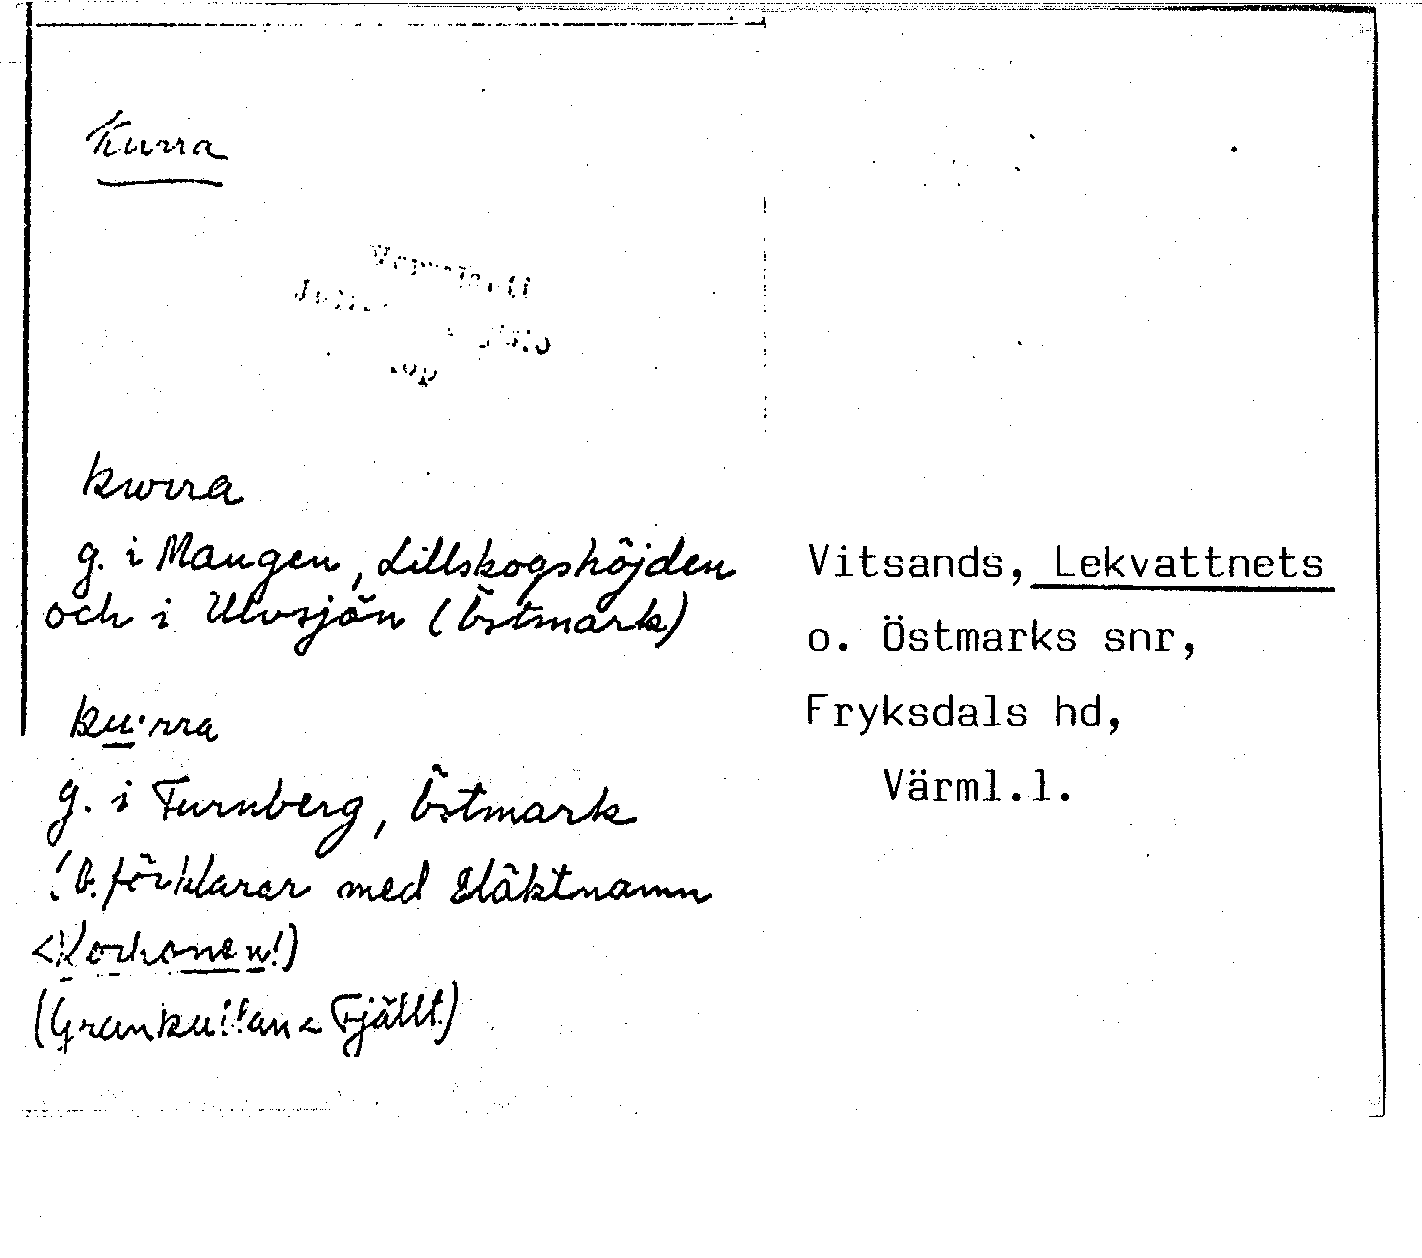 Kurra
kurra
g. i Mangen, Lillskogshöjden
och i Ulvsjön (Östmark)
ku·rra
g. i Furnberg, Östmark
förklarar med släktnamn
<Korhonen!)
Fjällt.)
Vitsands, Lekvattnets
o. Östmarks snr,
Fryksdals hd,
Värml.l.